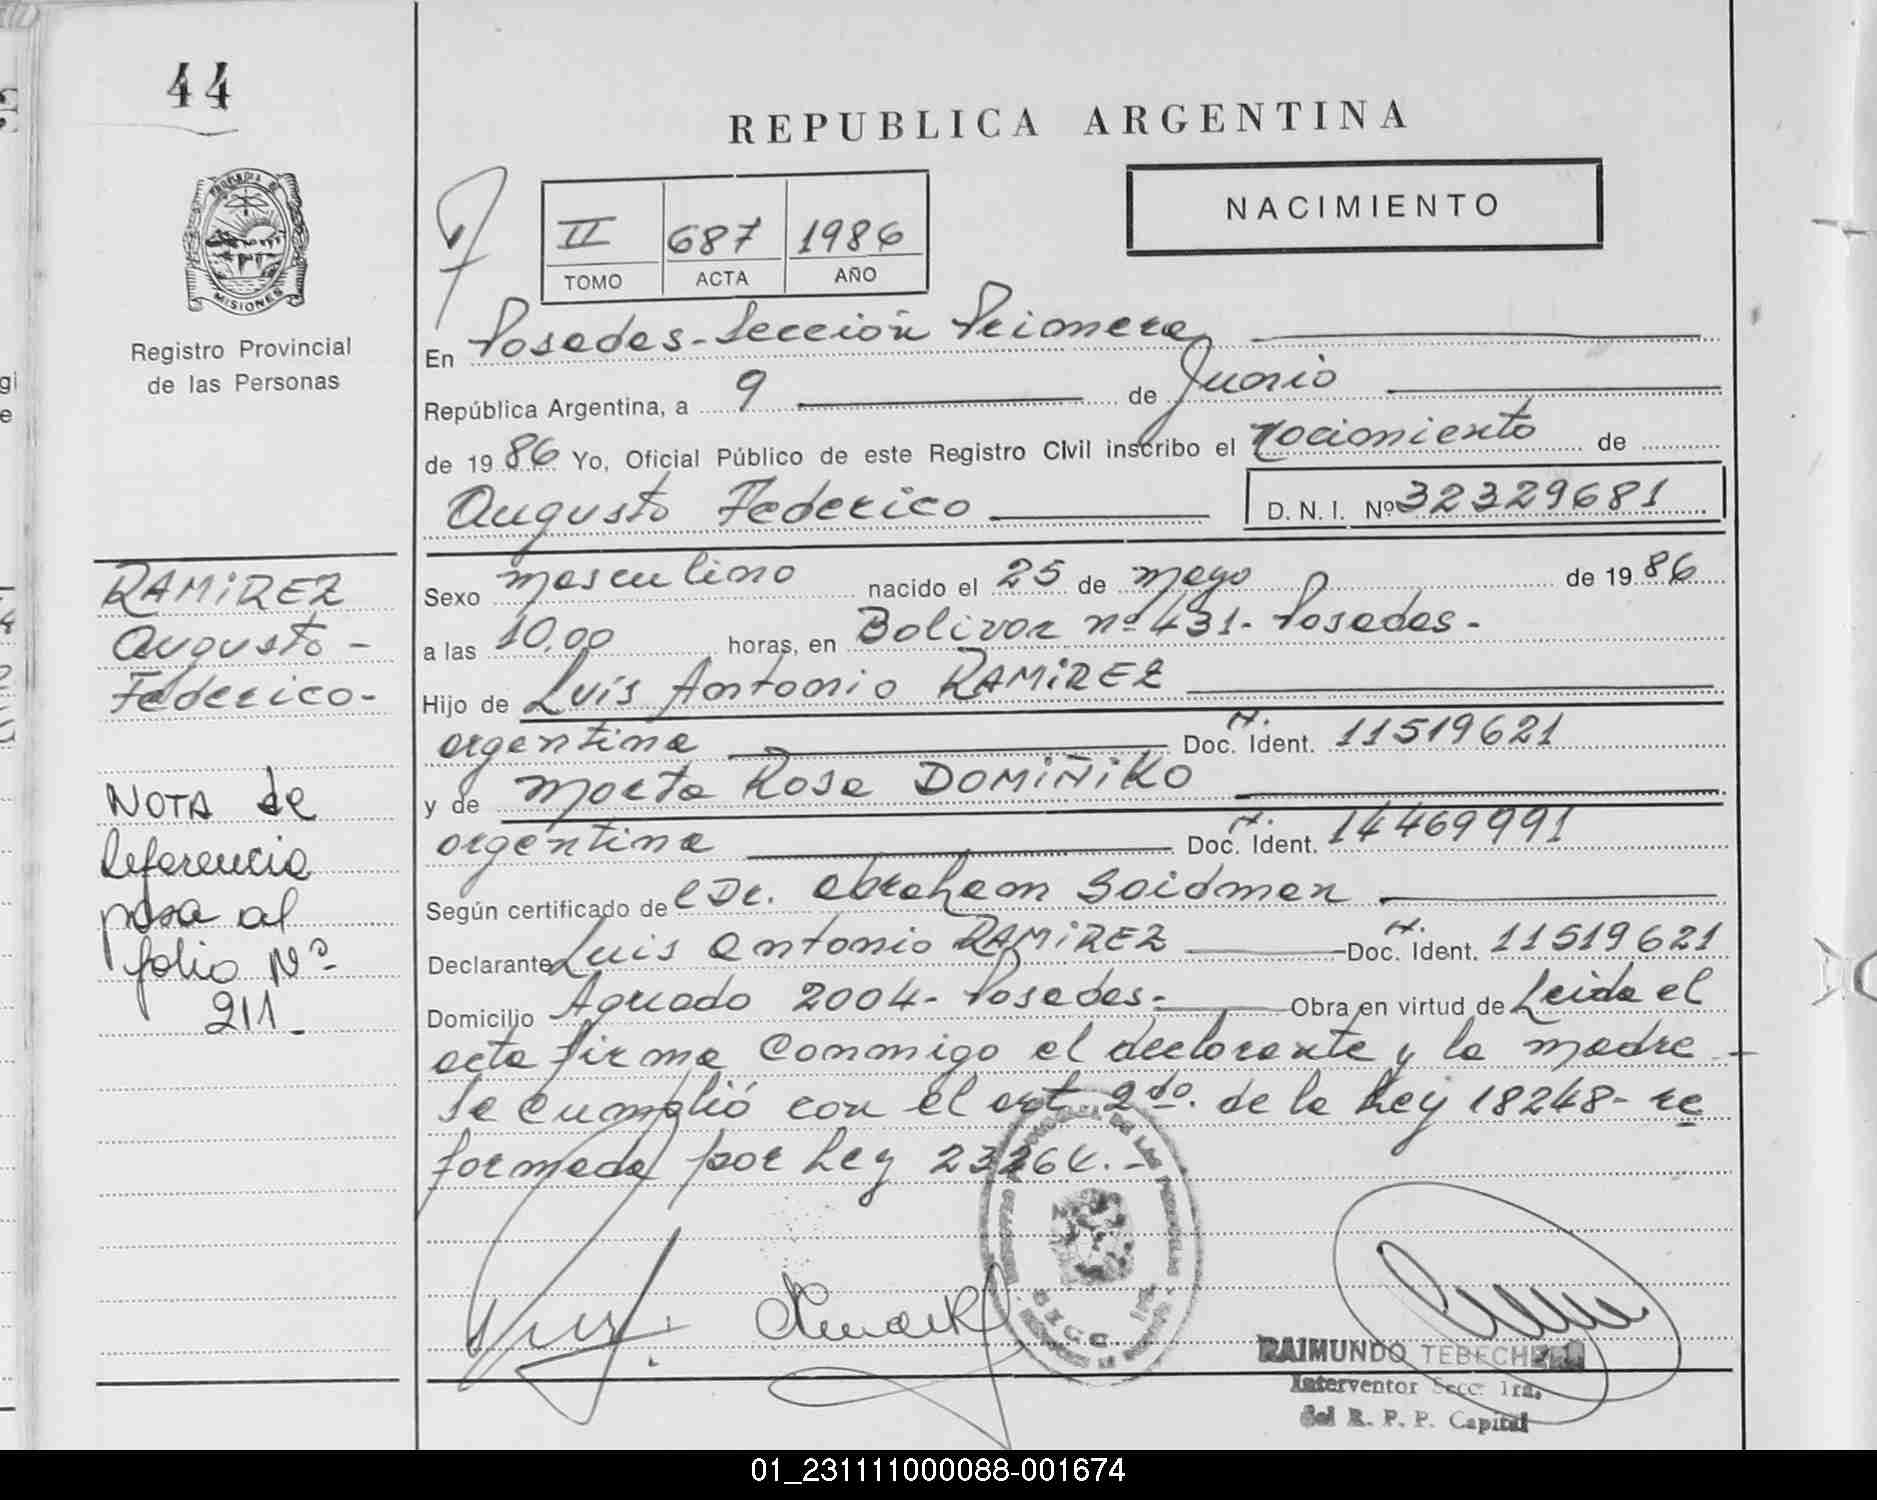 44
REPUBLICA ARGENTINA
PROVINCIA DE
MISIONES
Registro Provincial
de las Personas
II 687 1986
TOMO ACTA AÑO
NACIMIENTO
En Posadas - Sección Primera
República Argentina, a 9 de Junio
de 1986 Yo, Oficial Público de este Registro Civil inscribo el nacimiento de
Augusto Federico D. N. I. Nº 32329681
RAMIREZ
Augusto -
Federico -
NOTA de
Referencia
pasa al
folio Nº
211-
Sexo masculino nacido el 25 de mayo de 1986
a las 10,00 horas, en Bolivar nº 431 - Posadas -
Hijo de Luis Antonio RAMIREZ
argentina Doc. Ident. 11519621
y de Marta Rosa DOMIÑIKO
argentina Doc. Ident. 14469991
Según certificado de el Dr. Abraham Soidman
Declarante Luis Antonio RAMIREZ Doc. Ident. 11519621
Domicilio Aguado 2004 - Posadas - Obra en virtud de Leida el
acta firma conmigo el declarante y la madre -
Se cumplió con el art 2do. de la Ley 18248 - re
formada por Ley 23264. -
RAIMUNDO TEBECHERI
Interventor Secc. 1ra.
del R. P. P. Capital
01_231111000088-001674